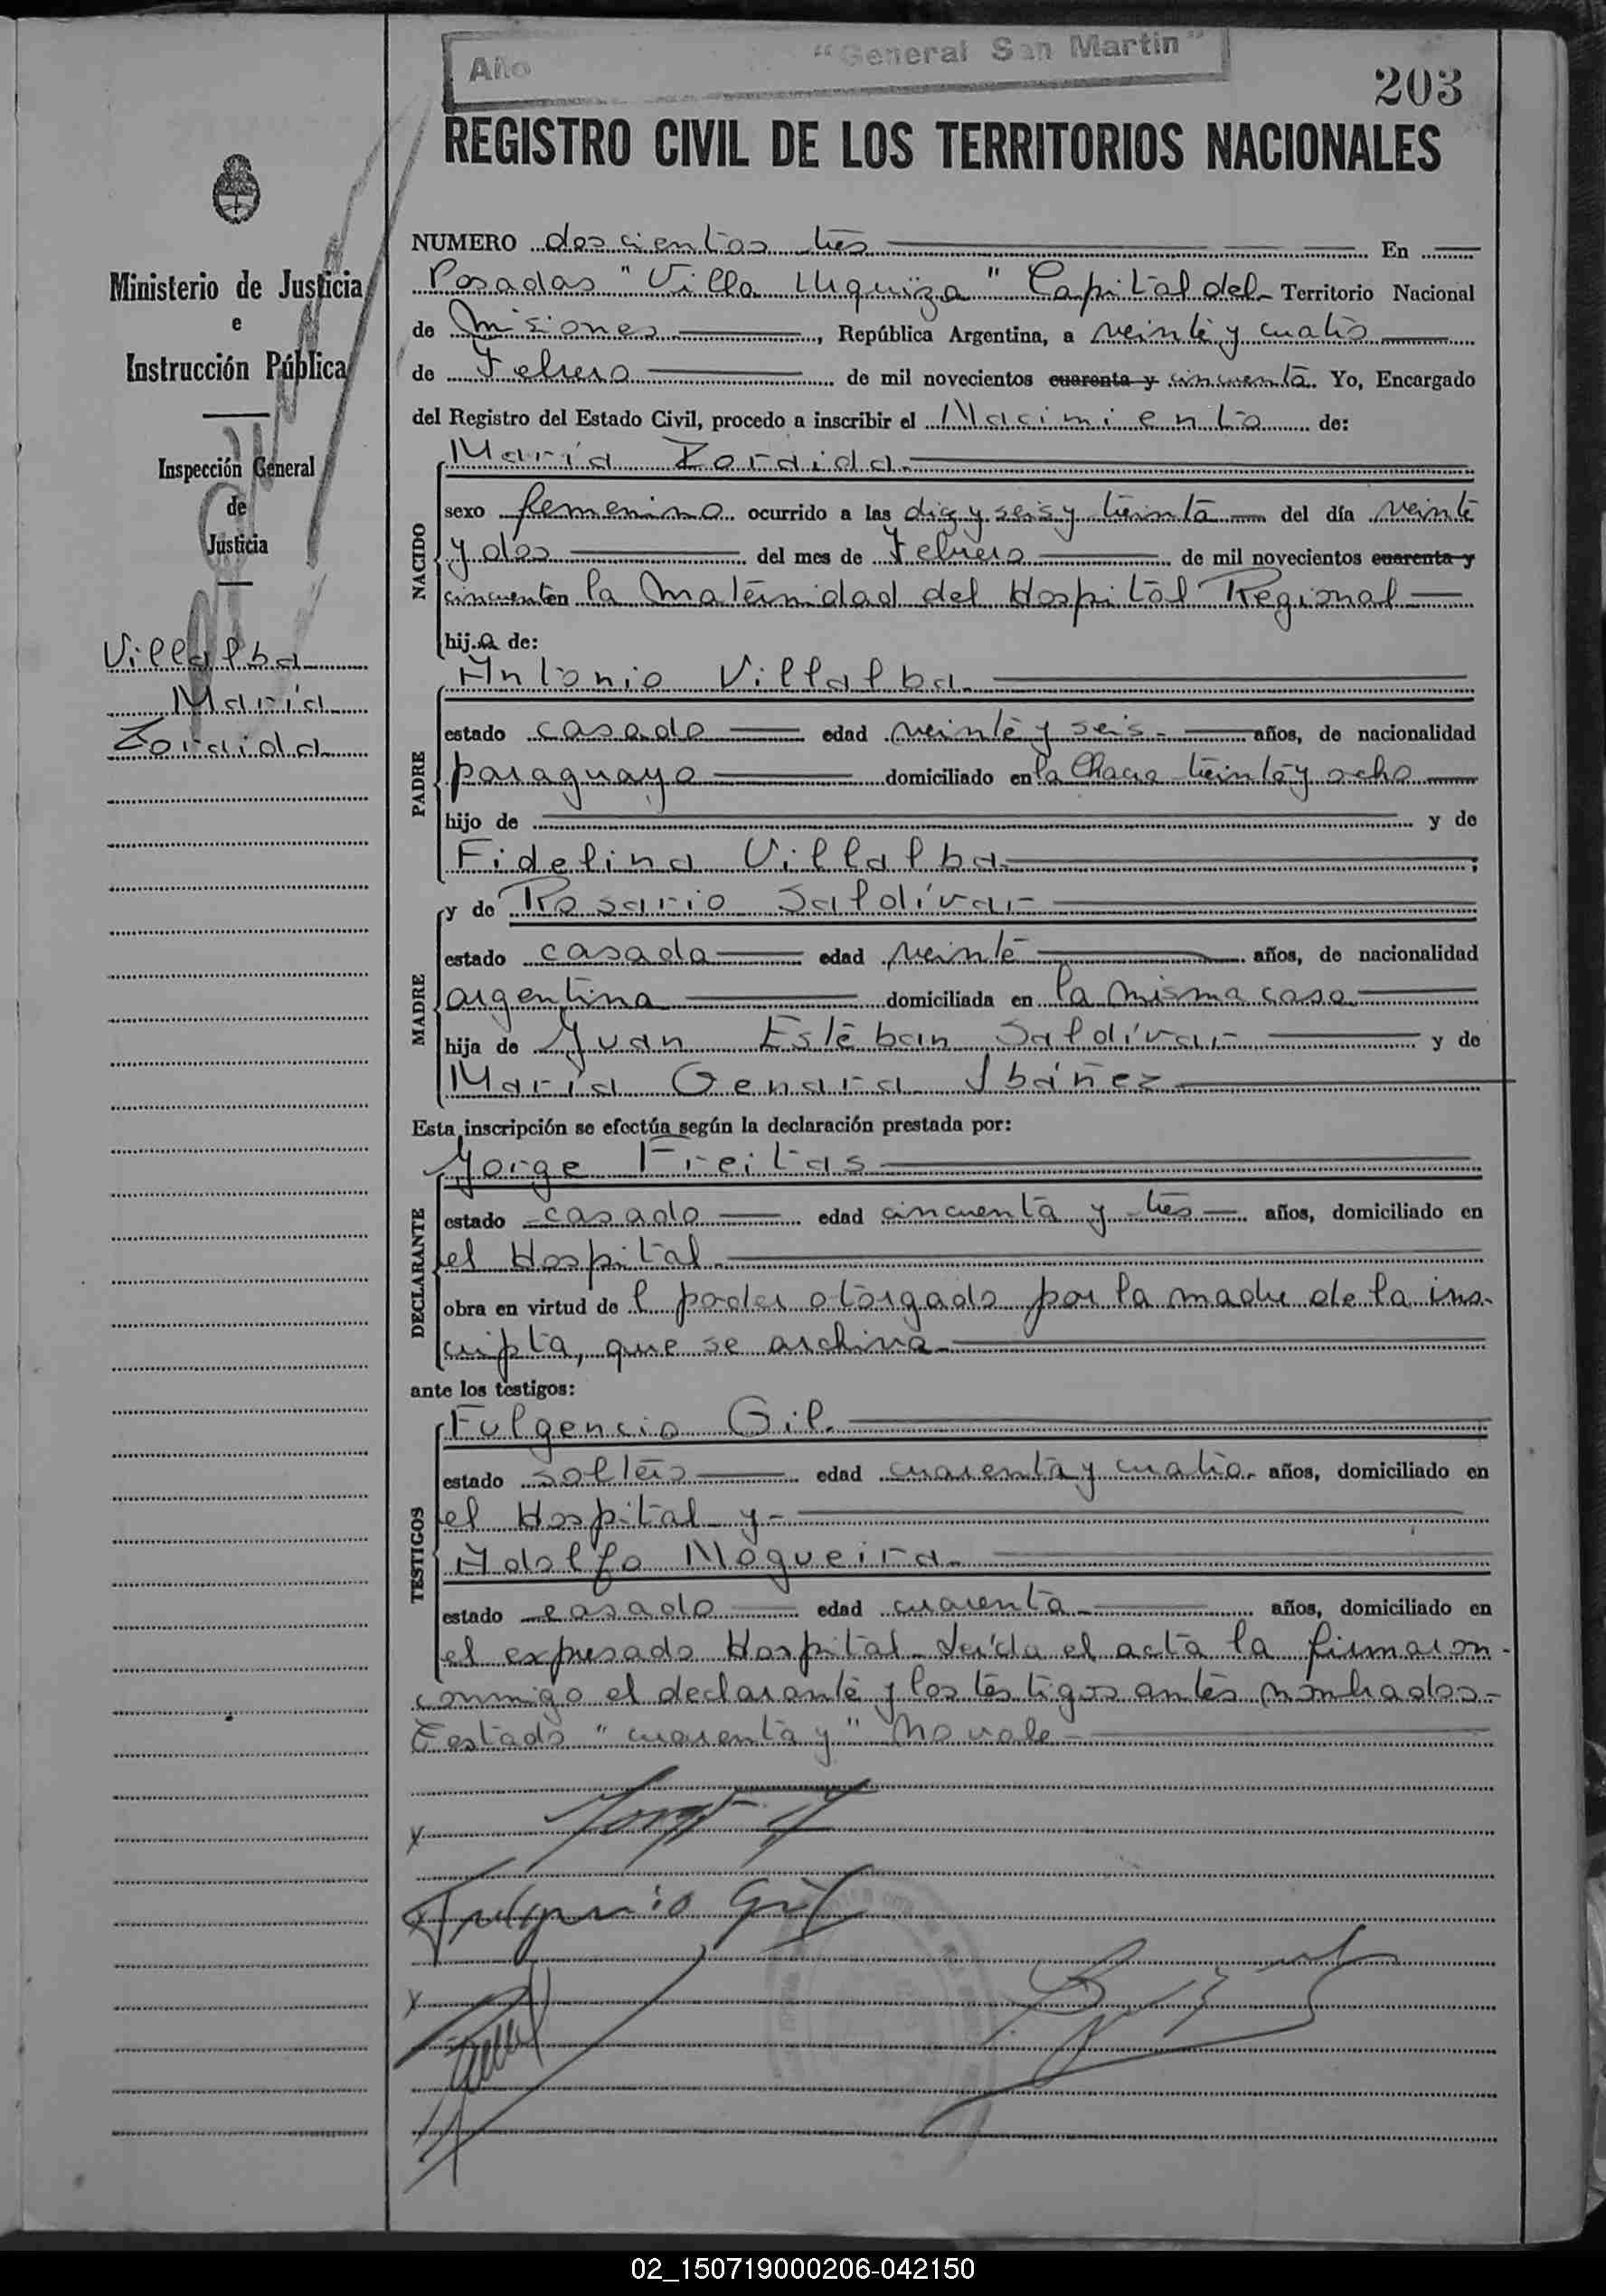 Año "General San Martin"
203
REGISTRO CIVIL DE LOS TERRITORIOS NACIONALES
Ministerio de Justicia
e
Instrucción Pública
Inspección General
de
Justicia
Villalba
María
Zoraida
NUMERO doscientos tres En
Posadas "Villa Urquiza" Capital del Territorio Nacional
de Misiones, República Argentina, a veinte y cuatro
de Febrero de mil novecientos cuarenta y cincuenta. Yo, Encargado
del Registro del Estado Civil, procedo a inscribir el Nacimiento de:
María Zoraida.
NACIDO
sexo femenino ocurrido a las diez y seis y treinta del día veinte
y dos del mes de Febrero de mil novecientos cuarenta y
cincuenta en la Maternidad del Hospital Regional
hija de:
Antonio Villalba.
PADRE
estado casado edad veinte y seis años, de nacionalidad
paraguaya domiciliado en la Chacra treinta y ocho
hijo de y de
Fidelina Villalba ;
y de Rosario Saldívar
MADRE
estado casada edad veinte años, de nacionalidad
argentina domiciliada en la misma casa
hija de Juan Esteban Saldívar y de
María Genara Ibáñez
Esta inscripción se efectúa según la declaración prestada por:
Jorge Freitas
DECLARANTE
estado casado edad cincuenta y tres años, domiciliado en
el Hospital
obra en virtud del poder otorgado por la madre de la ins-
cripta, que se archiva
ante los testigos:
Fulgencio Gil.
TESTIGOS
estado soltero edad cuarenta y cuatro años, domiciliado en
el Hospital y
Adolfo Nogueira.
estado casado edad cuarenta años, domiciliado en
el expresado Hospital. Leída el acta la firmaron
conmigo el declarante y los testigos antes nombrados-
Testado "cuarenta y" No vale
Fulgencio Gil
02_150719000206-042150